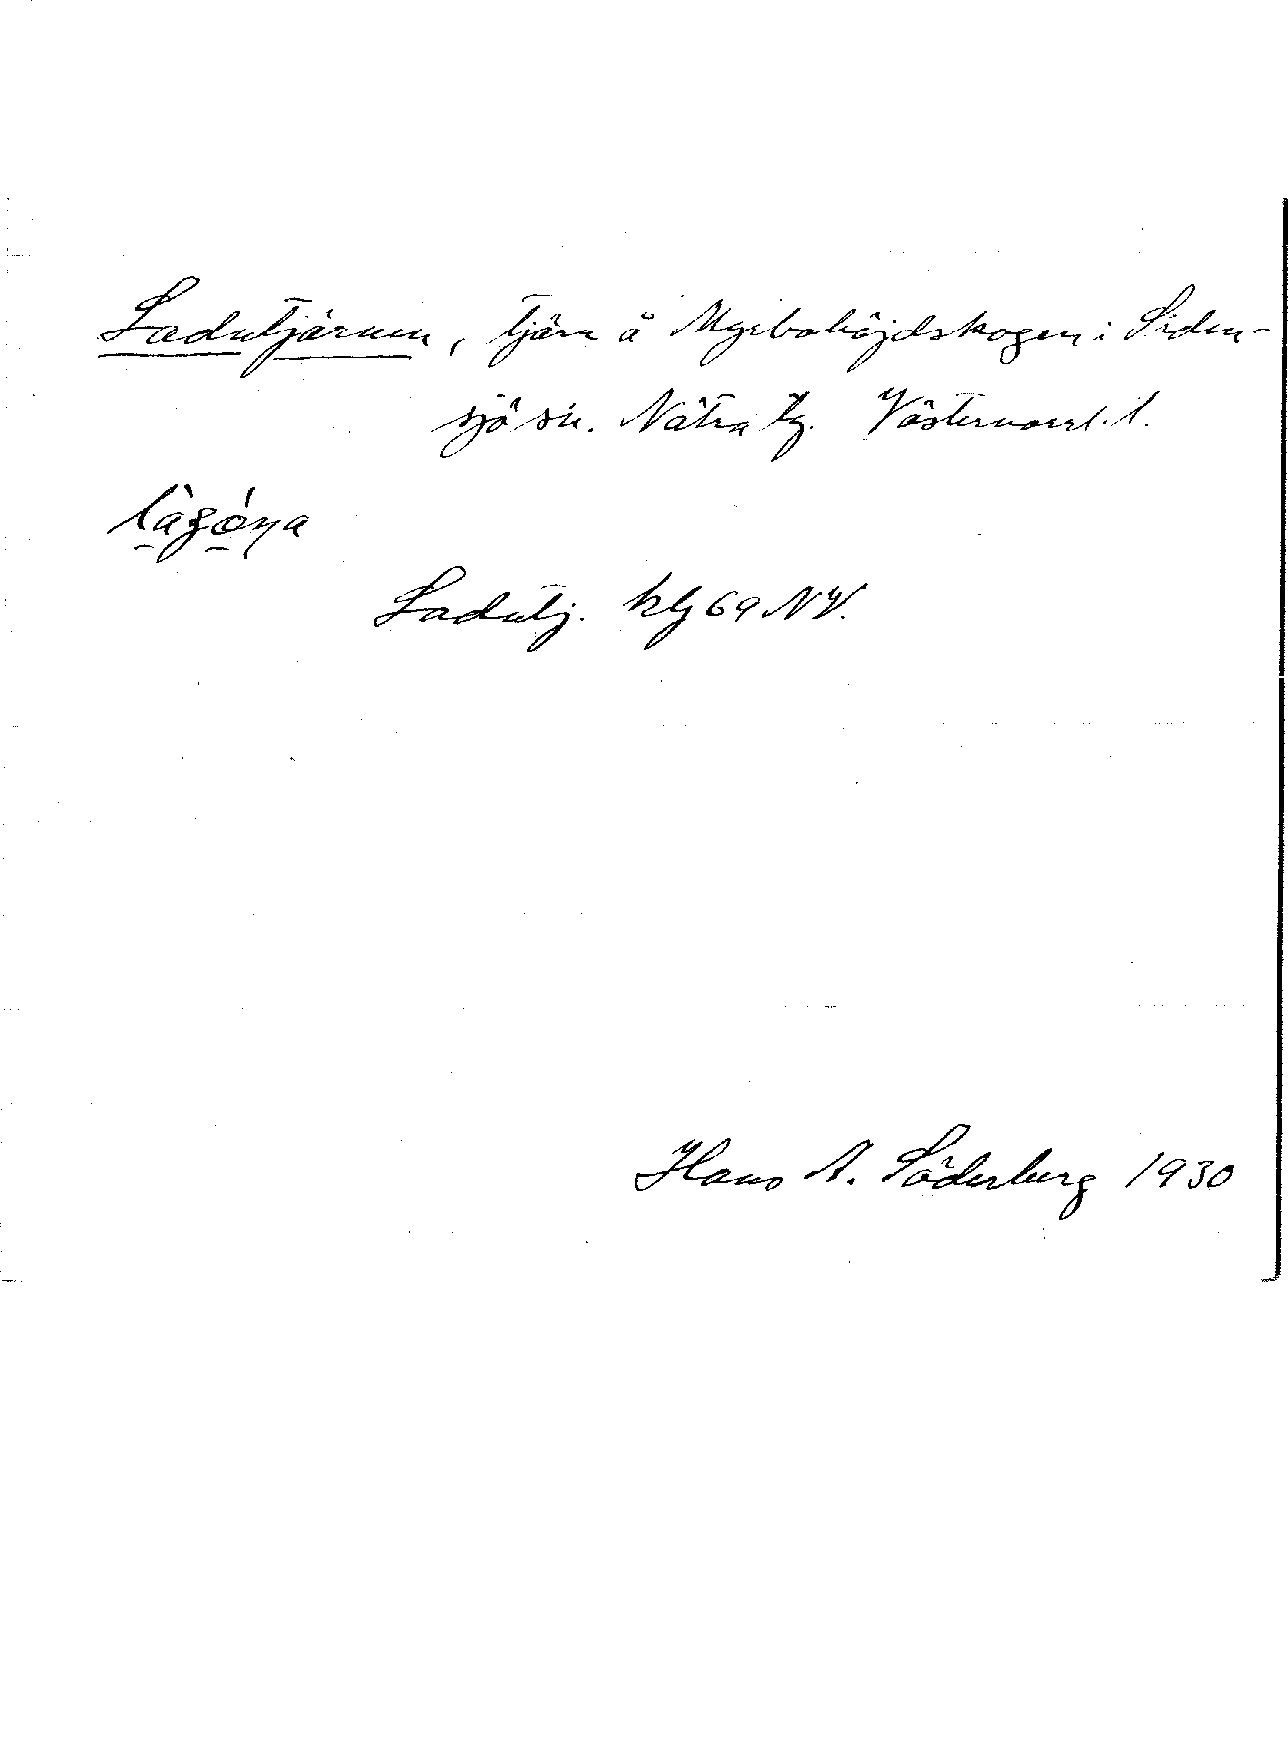 Ladutjärnen, tjärn å Myrbohöjdskogen i Siden-
sjö sn. Nätra tg. Västernorrl. l.
Ladutj. kbl 69 NV.
Hans A. Söderberg 1930